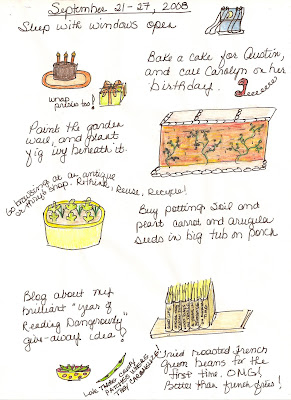 September 21-27, 2008
Sleep with windows open
Bake a cake for Austin,
and call Carolyn on her
birthday.
wrap
presies too!
Paint the garden
wall, and plant
fig ivy beneath it.
Go browsing at an antique
or thrift shop. Rethink, Reuse, Recycle!
Buy potting soil and
plant carrot and arugula
seeds in big tub on porch
Blog about my
brilliant "Year of
Reading Dangerously"
give-away idea!
Love those candy
Tried roasted french
green beans for the
first time. OMG!
Better than french fries!